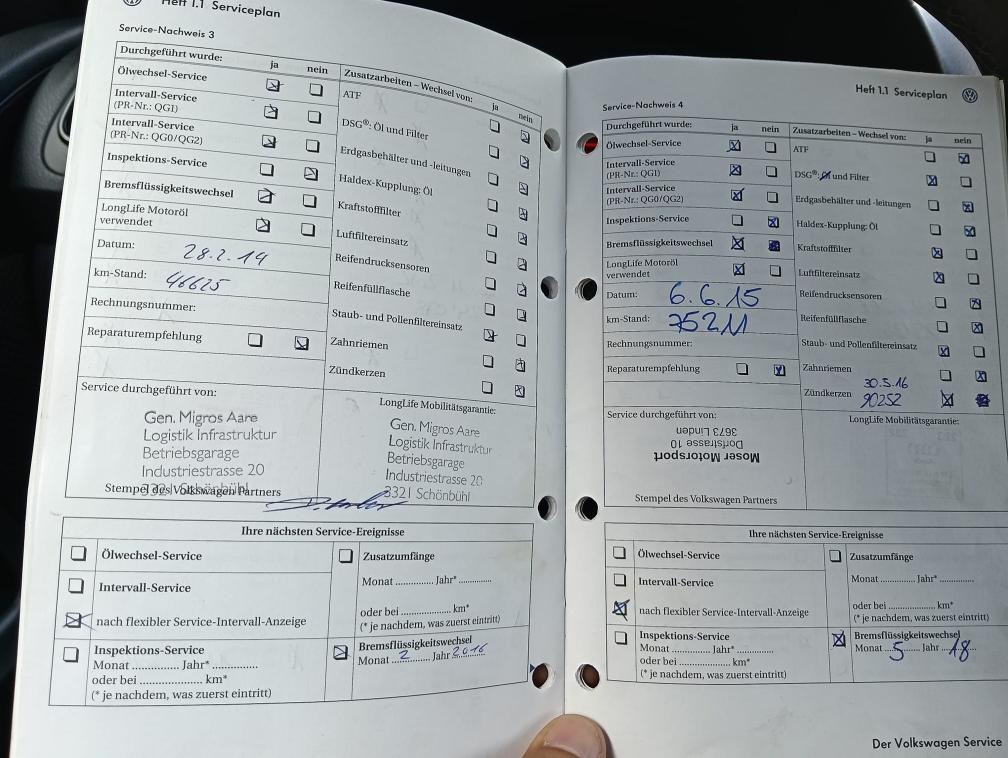 Heft 1.1 Serviceplan
Service-Nachweis 3
Durchgeführt wurde: ja nein
Ölwechsel-Service
Intervall-Service
(PR-Nr.: QG1)
Intervall-Service
(PR-Nr.: QG0/QG2)
Inspektions-Service
Bremsflüssigkeitswechsel
LongLife Motoröl
verwendet
Datum: 28.2.14
km-Stand: 46625
Rechnungsnummer:
Reparaturempfehlung
Zusatzarbeiten – Wechsel von: ja nein
ATF
DSG®: Öl und Filter
Erdgasbehälter und -leitungen
Haldex-Kupplung: Öl
Kraftstofffilter
Luftfiltereinsatz
Reifendrucksensoren
Reifenfüllflasche
Staub- und Pollenfiltereinsatz
Zahnriemen
Zündkerzen
Service durchgeführt von:
Gen. Migros Aare
Logistik Infrastruktur
Betriebsgarage
Industriestrasse 20
Stempel des Volkswagen Partners
LongLife Mobilitätsgarantie:
Gen. Migros Aare
Logistik Infrastruktur
Betriebsgarage
Industriestrasse 20
3321 Schönbühl
Ihre nächsten Service-Ereignisse
Ölwechsel-Service
Intervall-Service
nach flexibler Service-Intervall-Anzeige
Inspektions-Service
Monat .............. Jahr* ..............
oder bei .................... km*
(* je nachdem, was zuerst eintritt)
Zusatzumfänge
Monat .............. Jahr* ..............
oder bei .................... km*
(* je nachdem, was zuerst eintritt)
Bremsflüssigkeitswechsel
Monat 2 Jahr 2016
Heft 1.1 Serviceplan
Service-Nachweis 4
Durchgeführt wurde: ja nein
Ölwechsel-Service
Intervall-Service
(PR-Nr.: QG1)
Intervall-Service
(PR-Nr.: QG0/QG2)
Inspektions-Service
Bremsflüssigkeitswechsel
LongLife Motoröl
verwendet
Datum: 6.6.15
km-Stand: 75211
Rechnungsnummer:
Reparaturempfehlung
Zusatzarbeiten – Wechsel von: ja nein
ATF
DSG®: Öl und Filter
Erdgasbehälter und -leitungen
Haldex-Kupplung: Öl
Kraftstofffilter
Luftfiltereinsatz
Reifendrucksensoren
Reifenfüllflasche
Staub- und Pollenfiltereinsatz
Zahnriemen
30.5.16
Zündkerzen 90252
Service durchgeführt von:
Moser Motorsport
Dorfstrasse 10
3673 Linden
Stempel des Volkswagen Partners
LongLife Mobilitätsgarantie:
Ihre nächsten Service-Ereignisse
Ölwechsel-Service
Intervall-Service
nach flexibler Service-Intervall-Anzeige
Inspektions-Service
Monat .............. Jahr* ..............
oder bei .................... km*
(* je nachdem, was zuerst eintritt)
Zusatzumfänge
Monat .............. Jahr* ..............
oder bei .................... km*
(* je nachdem, was zuerst eintritt)
Bremsflüssigkeitswechsel
Monat 5 Jahr 18
Der Volkswagen Service